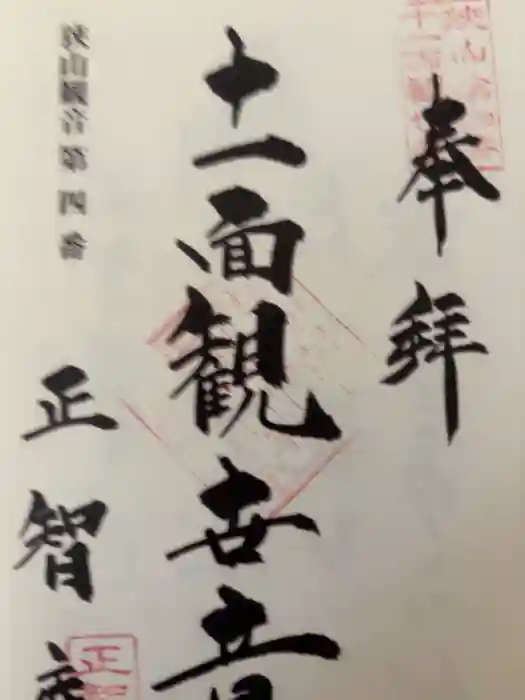 奉拝
十一面観世音
狭山観音第四番
正智
正智